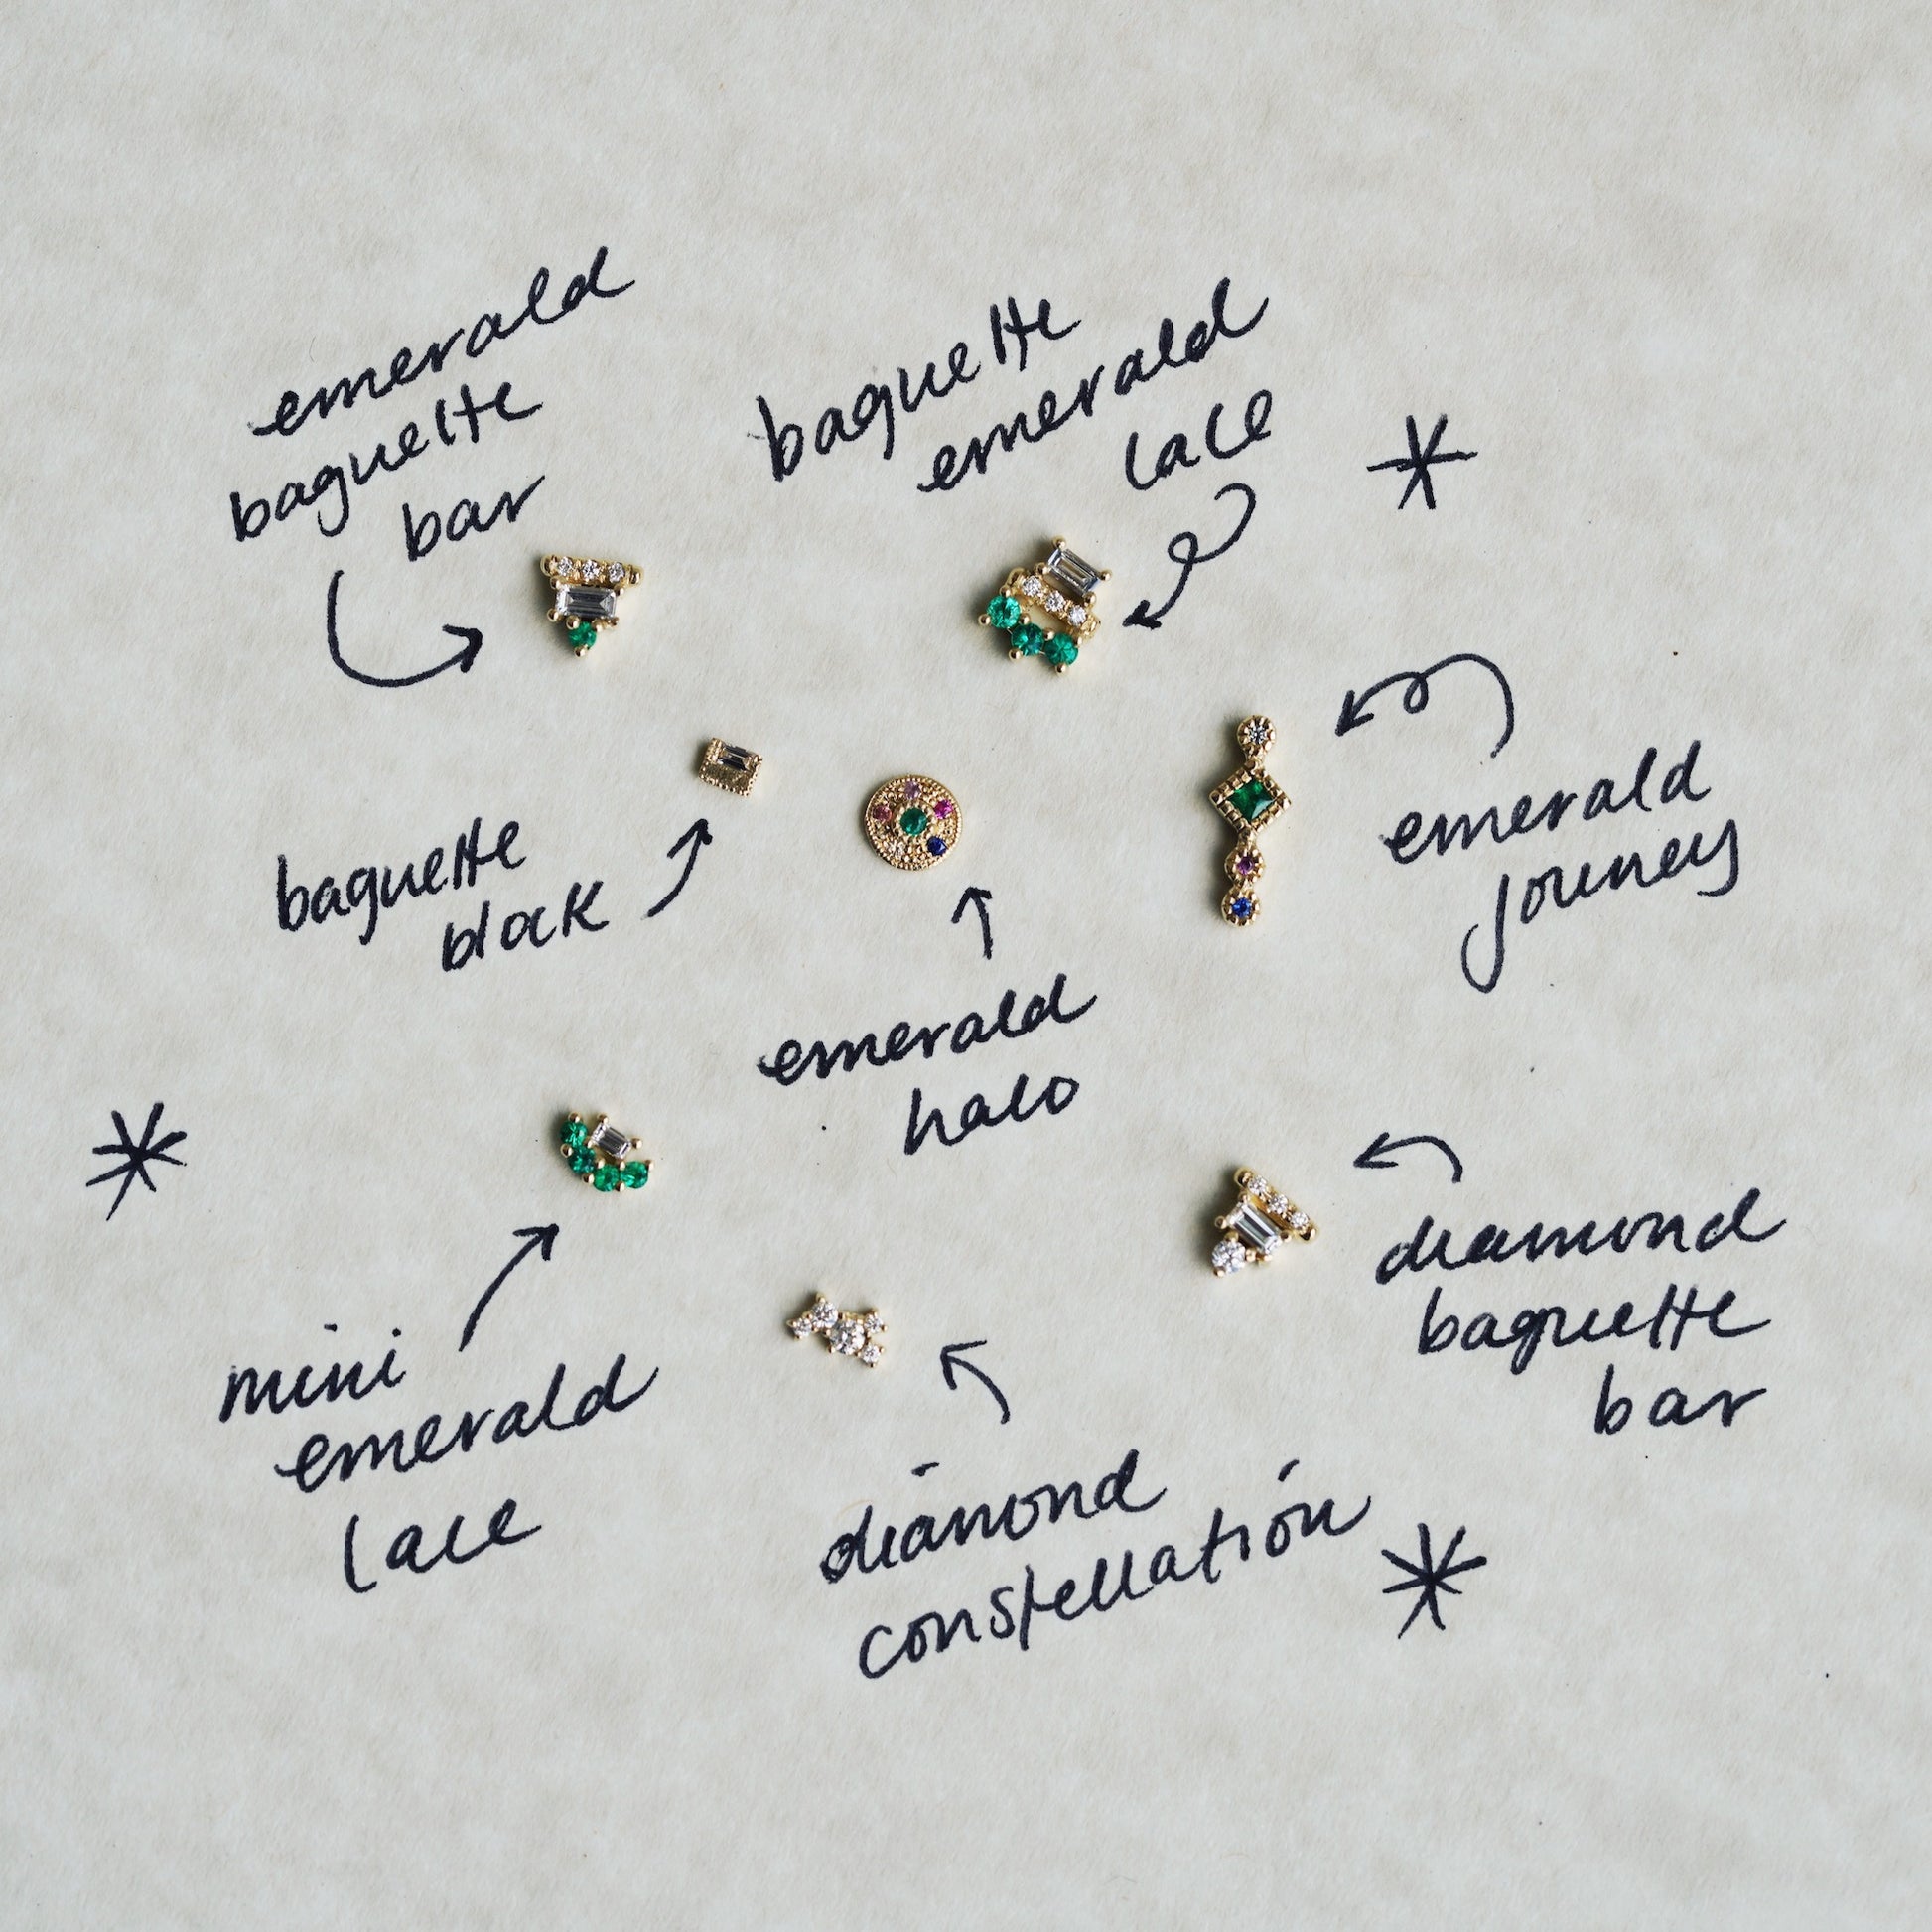 emerald
baguette
bar
baguette
emerald
lace
emerald
journey
baguette
block
emerald
halo
diamond
baguette
bar
mini
emerald
lace
diamond
constellation